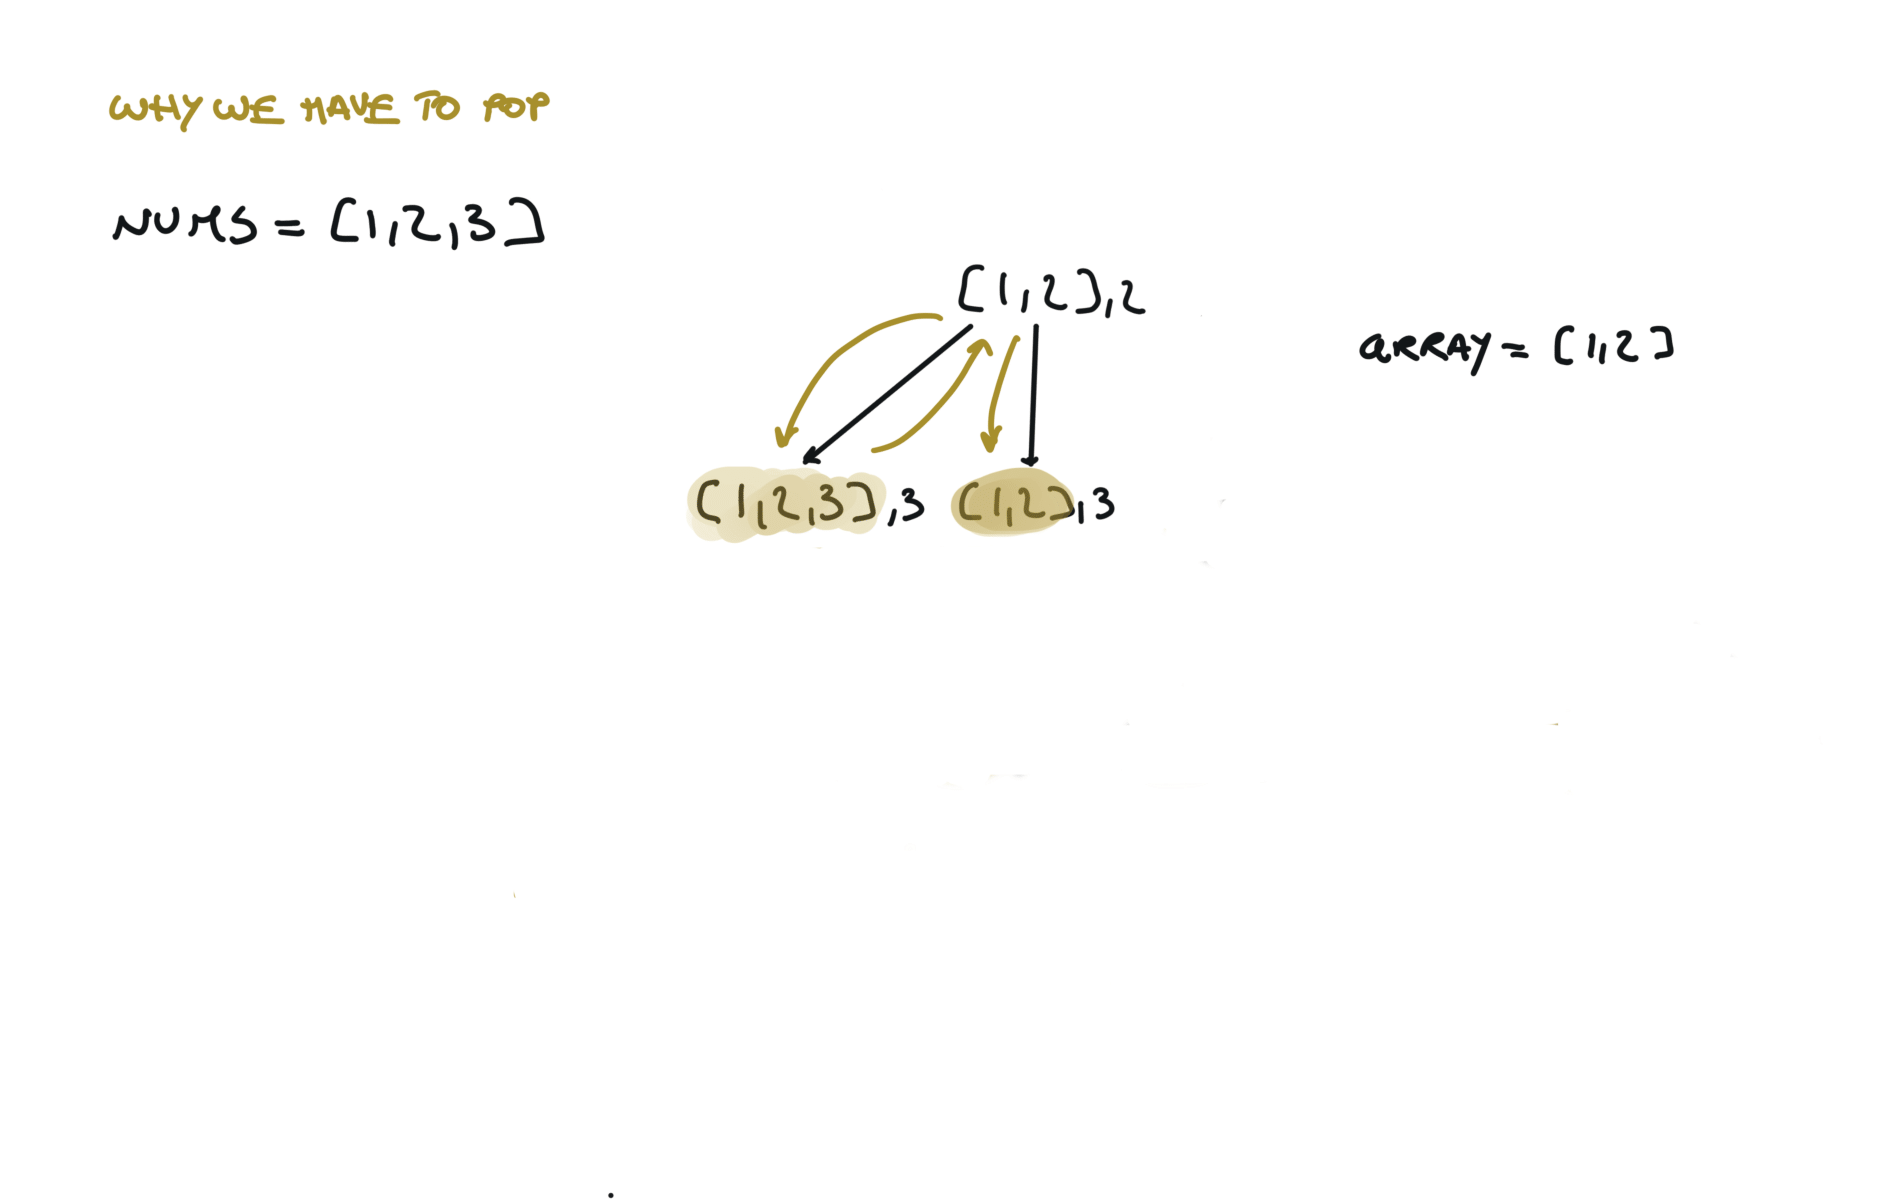 WHY WE HAVE TO POP
NUMS = [1,2,3]
[1,2],2
ARRAY = [1,2]
[1,2,3],3 [1,2],3